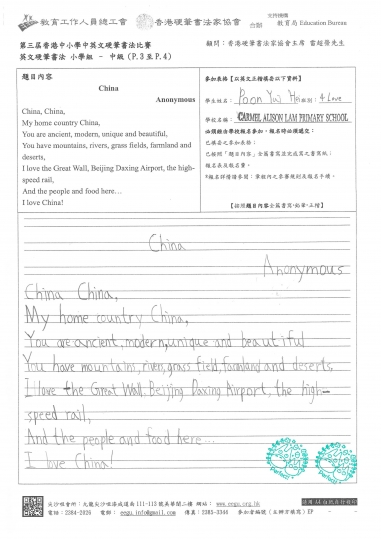 教育工作人員總工會 香港硬筆書法家協會 合辦 支持機構 教育局 Education Bureau
第三屆香港中小學中英文硬筆書法比賽
顧問：香港硬筆書法家協會主席 雷超榮先生
英文硬筆書法 小學組 - 中級 (P.3 至 P.4)
題目內容
China
Anonymous
China, China,
My home country China,
You are ancient, modern, unique and beautiful,
You have mountains, rivers, grass fields, farmland and
deserts,
I love the Great Wall, Beijing Daxing Airport, the high-
speed rail,
And the people and food here…
I love China!
參加表格【以英文正楷填妥以下資料】
學生姓名： Poon Yui Hei 班別： 4 Love
學校名稱： CARMEL ALISON LAM PRIMARY SCHOOL
必須經由學校報名參加，報名時必須遞交：
已填妥之參加表格；
已按照「題目內容」全篇書寫並完成英文書寫紙；
報名表及報名費。
【按照題目內容全篇書寫，鉛筆，正楷】
China
Anonymous
China China,
My home country China,
You are ancient, modern, unique and beautiful
You have mountains, rivers, grass field, farmland and deserts,
I love the Great Wall, Beijing Daxing Airport, the high-
speed rail,
And the people and food here...
I love China!
尖沙咀會所：九龍尖沙咀漆咸道南 111-113 號 網站： www.eegu.org.hk
電話： 2384-2026 電郵： eegu.info@gmail.com 傳真： 2385-3344 參加者編號 (主辦方填寫) EP - -
請用 A4 白紙自行影印